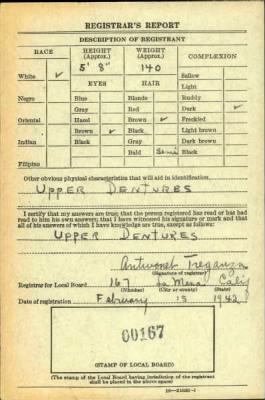 REGISTRAR'S REPORT
DESCRIPTION OF REGISTRANT
RACE HEIGHT (Approx.) WEIGHT (Approx.) COMPLEXION
5' 8" 140
White ✓ Sallow
EYES HAIR Light
Negro Blue Blonde Ruddy
Gray Red Dark ✓
Oriental Hazel Brown ✓ Freckled
Brown ✓ Black Light brown
Indian Black Gray Dark brown
Bald Semi Black
Filipino
Other obvious physical characteristics that will aid in identification
UPPER DENTURES
I certify that my answers are true; that the person registered has read or has had
read to him his own answers; that I have witnessed his signature or mark and that
all of his answers of which I have knowledge are true, except as follows:
UPPER DENTURES
Antwonet Treganza
(Signature of registrar)
Registrar for Local Board 167 La Mesa Calif
(Number) (City or county) (State)
Date of registration February 15 1942
00167
(STAMP OF LOCAL BOARD)
(The stamp of the Local Board having jurisdiction of the registrant
shall be placed in the above space)